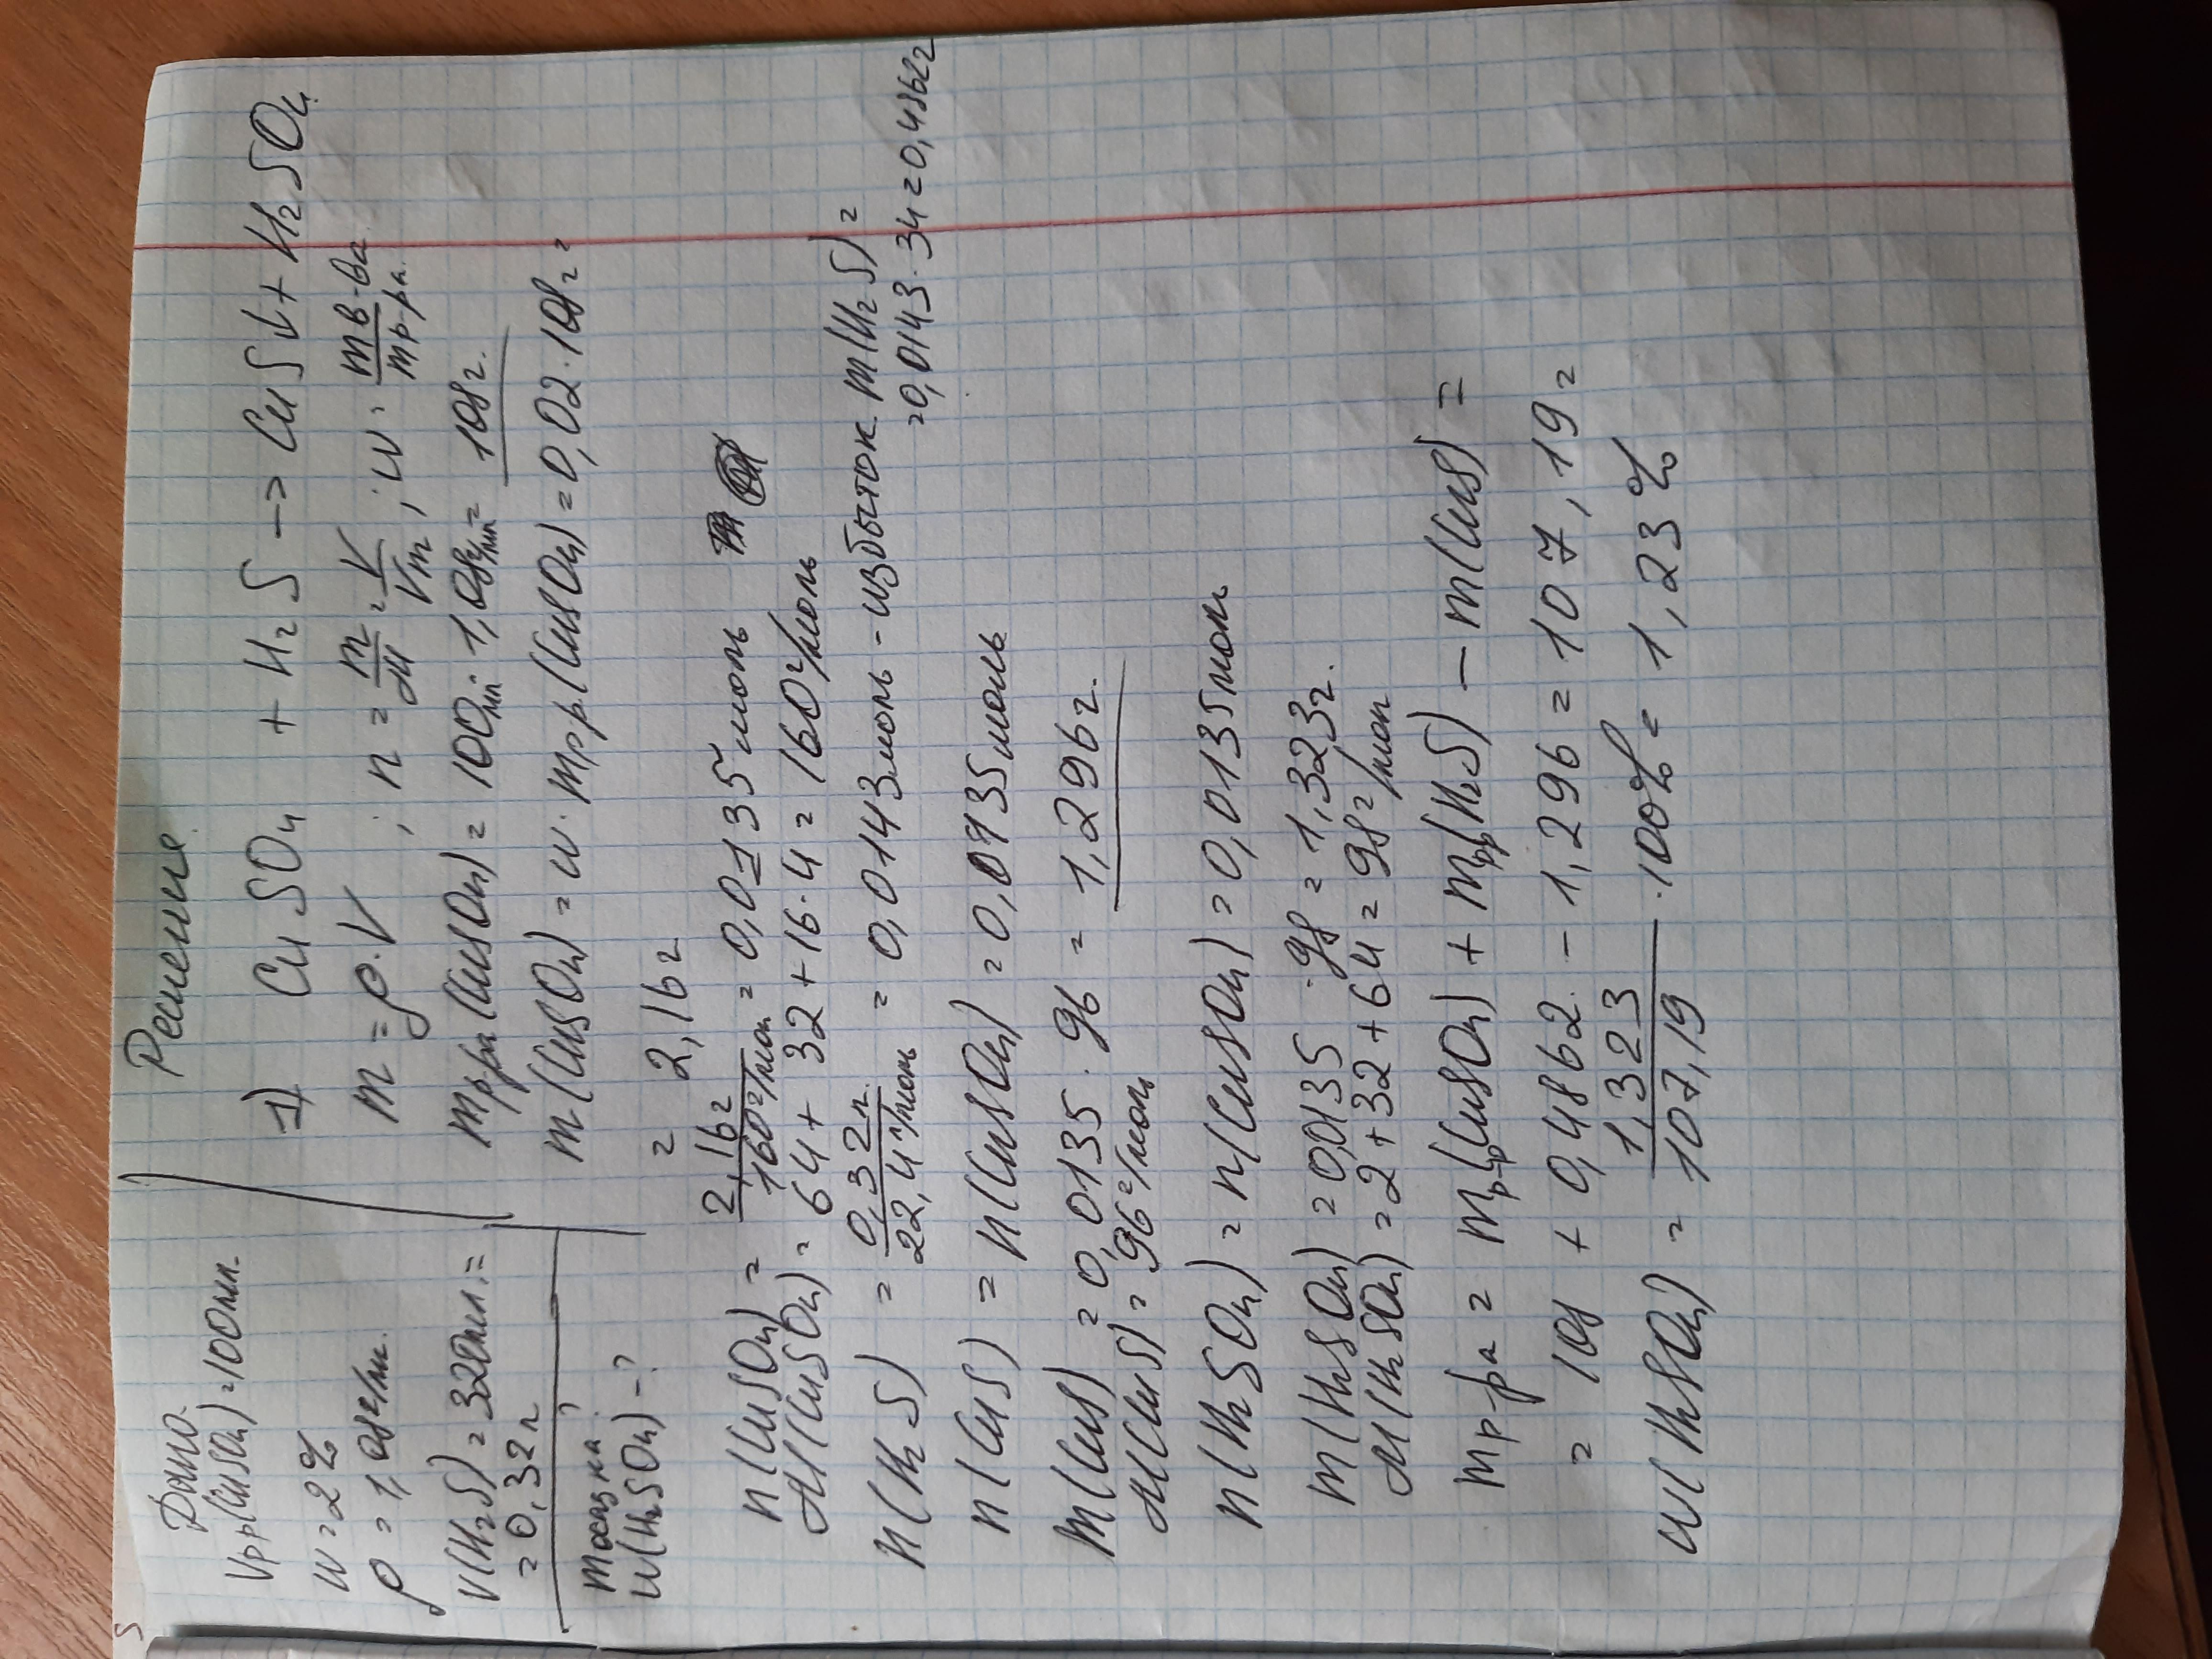 Дано.
Vр-р(CuSO4) = 100мл.
w = 2%
ρ = 1,08г/мл.
V(H2S) = 320мл. =
= 0,32л
mосадка?
w(H2SO4) - ?
Решение
1) CuSO4 + H2S → CuS↓ + H2SO4
m = ρ·V ; n = m/M = V/Vm ; w = mв-ва/mр-ра.
mр-ра(CuSO4) = 100мл · 1,08г/мл = 108г.
m(CuSO4) = w · mр-р(CuSO4) = 0,02 · 108г =
= 2,16г
n(CuSO4) = 2,16г/160г/мол = 0,0135моль
M(CuSO4) = 64 + 32 + 16·4 = 160г/моль
n(H2S) = 0,32л/22,4л/моль = 0,0143моль - избыток. m(H2S) =
=0,0143·34=0,4862г
n(CuS) = n(CuSO4) = 0,0135моль
m(CuS) = 0,0135 · 96 = 1,296г.
M(CuS) = 96г/моль
n(H2SO4) = n(CuSO4) = 0,0135моль
m(H2SO4) = 0,0135 · 98 = 1,323г.
M(H2SO4) = 2+32+64 = 98г/мол
mр-ра = mр-р(CuSO4) + mр-р(H2S) - m(CuS) =
= 108 + 0,4862 - 1,296 = 107,19 =
w(H2SO4) = 1,323/107,19 · 100% = 1,23%